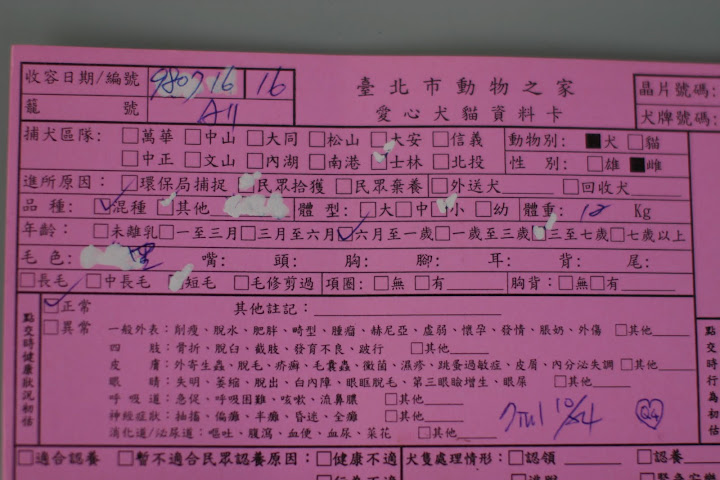 收容日期/編號 980716 16 臺北市動物之家 晶片號碼:
籠號 A11 愛心犬貓資料卡 犬牌號碼:
捕犬區隊: □萬華 □中山 □大同 □松山 □大安 □信義 動物別: ■犬 □貓
□中正 □文山 □內湖 □南港 □士林 □北投 性別: □雄 ■雌
進所原因: □環保局捕捉 □民眾拾獲 □民眾棄養 □外送犬 □回收犬
品種: ☑混種 □其他 體型: □大 □中 □小 □幼 體重: 12 Kg
年齡: □未離乳 □一至三月 □三月至六月 ☑六月至一歲 □一歲至三歲 □三至七歲 □七歲以上
毛色: 黑 嘴: 頭: 胸: 腳: 耳: 背: 尾:
□長毛 □中長毛 □短毛 □毛修剪過 項圈: □無 □有 胸背: □無 □有
點交時健康狀況初估
☑正常 其他註記:
□異常 一般外表: 削瘦、脫水、肥胖、畸型、腫瘤、赫尼亞、虛弱、懷孕、發情、脹奶、外傷 □其他
四肢: 骨折、脫臼、截肢、發育不良、跛行 □其他
皮膚: 外寄生蟲、脫毛、疥癬、毛囊蟲、黴菌、濕疹、跳蚤過敏症、皮屑、內分泌失調 □其他
眼睛: 失明、萎縮、脫出、白內障、眼眶脫毛、第三眼瞼增生、眼屎 □其他
呼吸道: 急促、呼吸困難、咳嗽、流鼻膿 □其他
神經症狀: 抽搐、偏癱、半癱、昏迷、全癱 □其他
消化道/泌尿道: 嘔吐、腹瀉、血便、血尿、菜花 □其他
點交時行為初估
□適合認養 □暫不適合民眾認養原因: □健康不適 犬隻處理情形: □認領 □認養